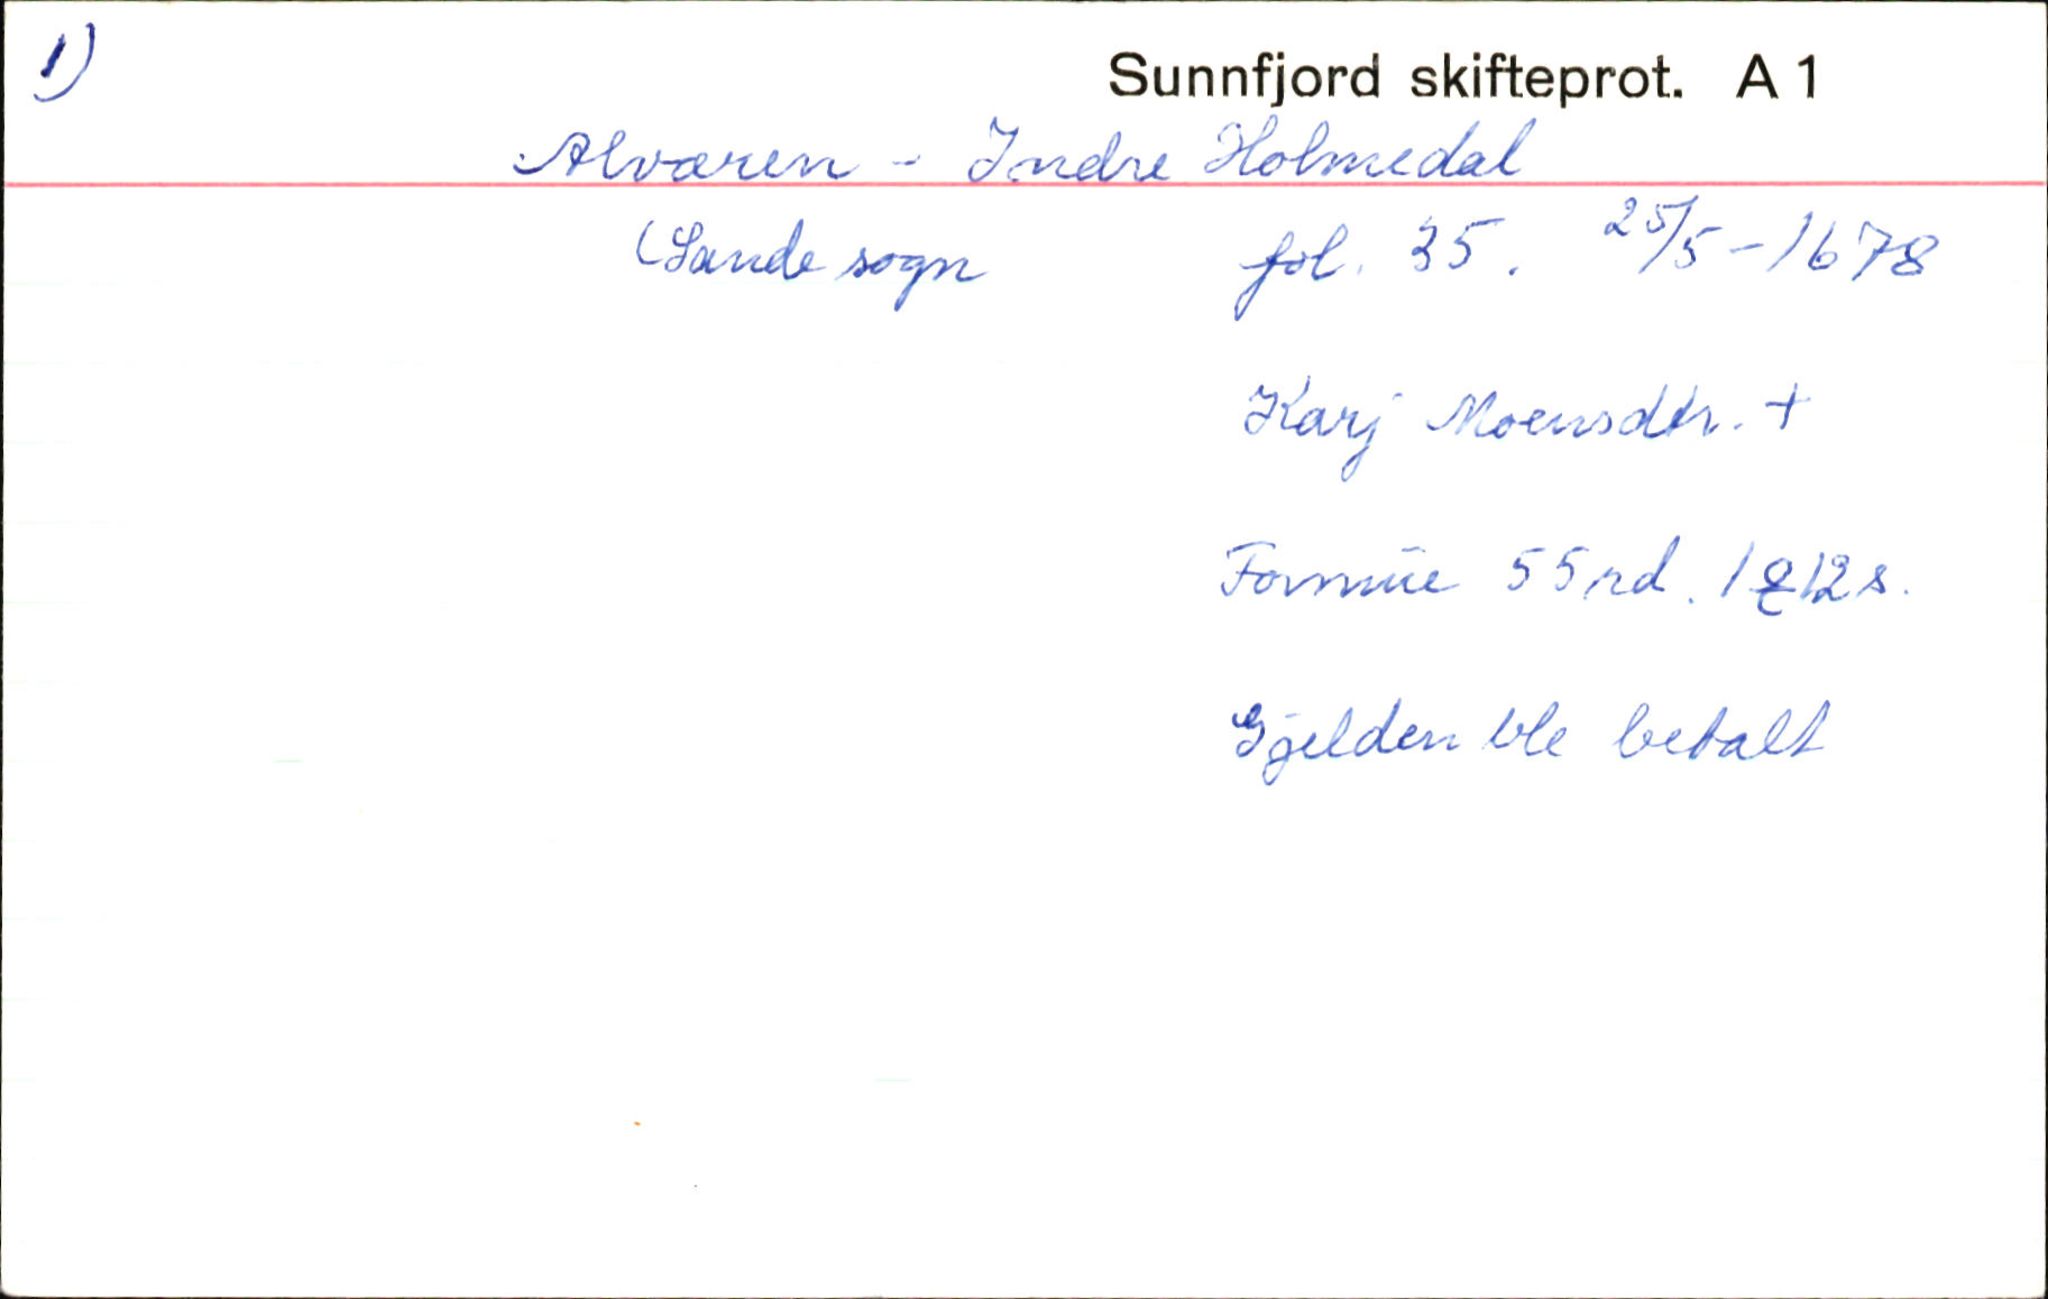 1)
Sunnfjord skifteprot. A 1
Alværen - Indre Holmedal
(Sande sogn fol. 35. 25/5-1678
Karj Moensdtr. +
Formüe 55 rd. 1 12 s.
Gjelden ble betalt